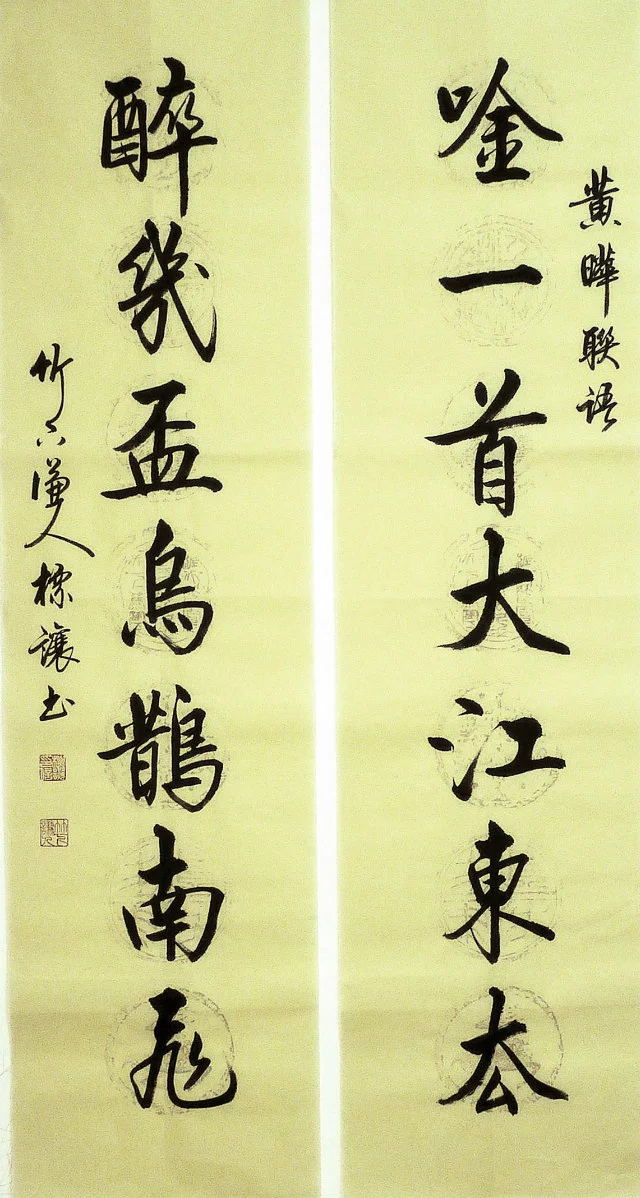 黃曄聯語
唫一首大江東去
醉幾盃烏鵲南飛
竹下謙人標讓书